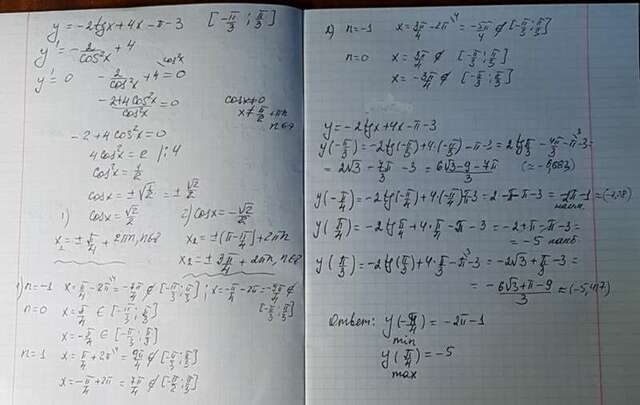 y = -2tgx + 4x - π - 3 [-π/3 ; π/3]
y' = -2/cos²x + 4
y' = 0 -2/cos²x + 4 = 0
(-2+4cos²x)/cos²x = 0 cosx≠0
x ≠ π/2 + πn
n∈Z
-2 + 4cos²x = 0
4cos²x = 2 |:4
cos²x = 1/2
cosx = ±√(1/2) = ±√2/2
1) cosx = √2/2 2) cosx = -√2/2
x₁ = ±π/4 + 2πn, n∈Z x₂ = ±(π - π/4) + 2πn
x₂ = ±3π/4 + 2πn, n∈Z
1) n=-1 x = π/4 - 2π = -7π/4 ∉ [-π/3 ; π/3] ; x = -π/4 - 2π = -9π/4 ∉ [-π/3 ; π/3]
n=0 x = π/4 ∈ [-π/3 ; π/3]
x = -π/4 ∈ [-π/3 ; π/3]
n=1 x = π/4 + 2π = 9π/4 ∉ [-π/3 ; π/3]
x = -π/4 + 2π = 7π/4 ∉ [-π/2 ; π/3]
2) n=-1 x = 3π/4 - 2π = -5π/4 ∉ [-π/3 ; π/3]
n=0 x = 3π/4 ∉ [-π/3 ; π/3]
x = -3π/4 ∉ [-π/3 ; π/3]
y = -2tgx + 4x - π - 3
y(-π/3) = -2tg(-π/3) + 4·(-π/3) - π - 3 = 2tgπ/3 - 4π/3 - π - 3 =
= 2√3 - 7π/3 - 3 = (6√3 - 9 - 7π)/3
y(-π/4) = -2tg(-π/4) + 4·(-π/4) - π - 3 = 2 - π - π - 3 = -2π - 1
наим.
y(π/4) = -2tgπ/4 + 4·π/4 - π - 3 = -2 + π - π - 3 =
= -5 наиб.
y(π/3) = -2tg(π/3) + 4·π/3 - π - 3 = -2√3 + π/3 - 3 =
= (-6√3 + π - 9)/3 ≈ (-5,417)
Ответ: y(-π/4) = -2π - 1
min
y(π/4) = -5
max